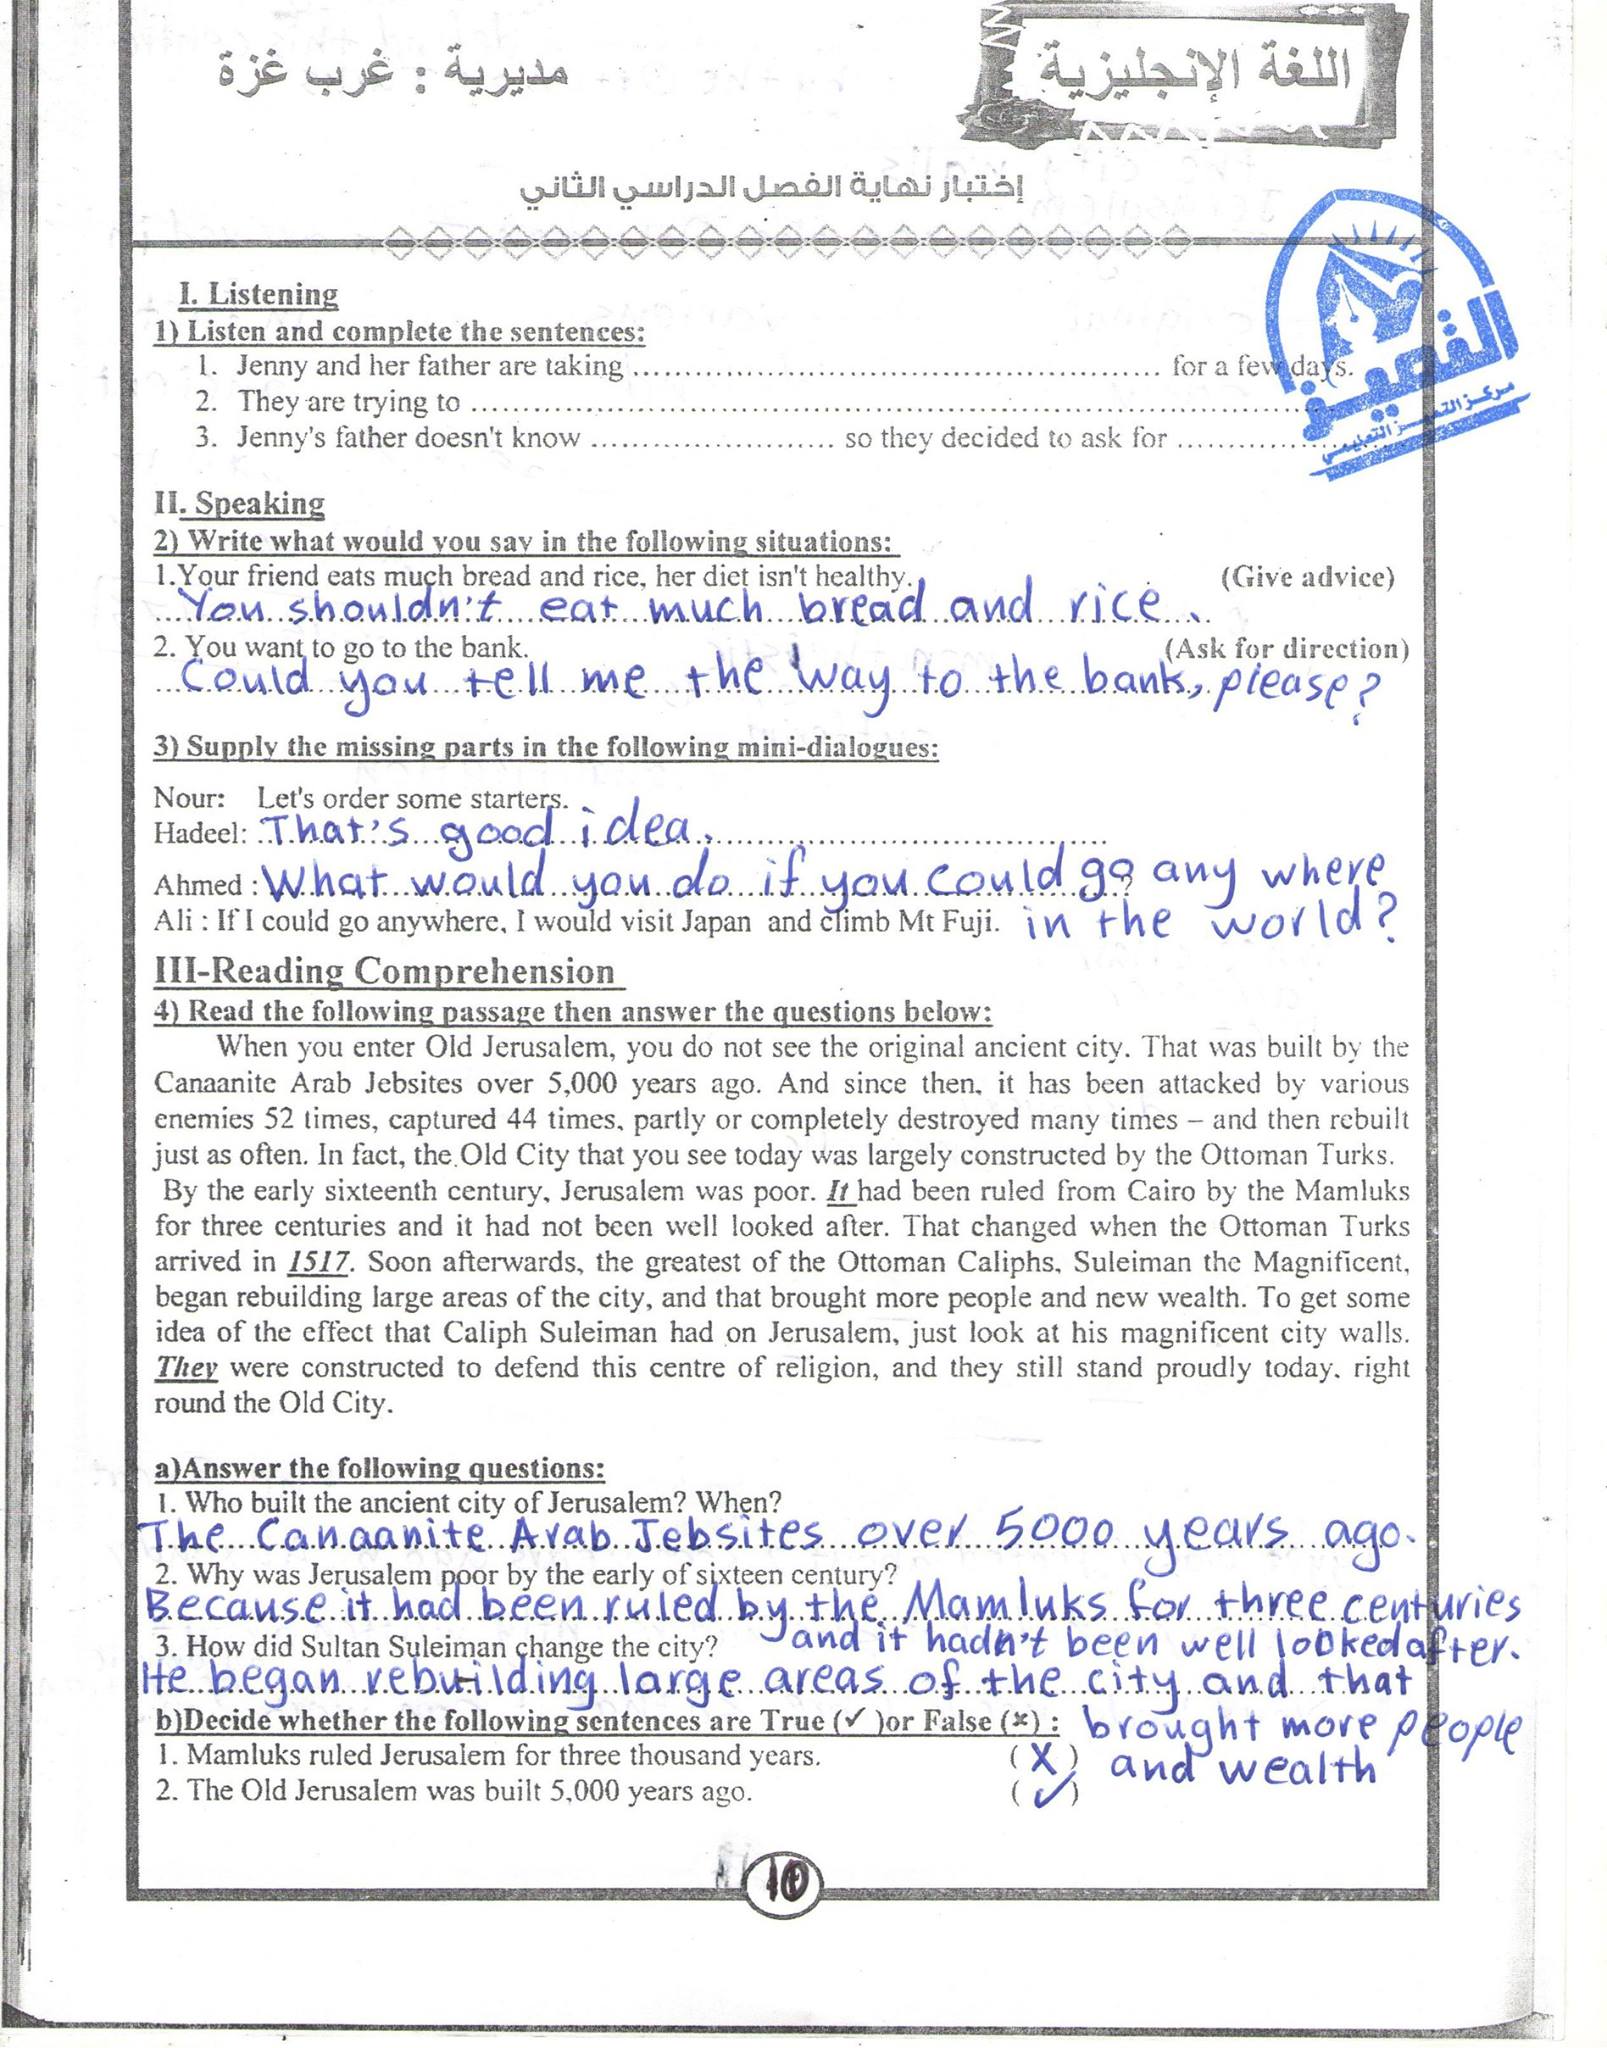 اللغة الإنجليزية
مديرية : غرب غزة
إختبار نهاية الفصل الدراسي الثاني
التميز
مركز التميز التعليمي
I. Listening
1) Listen and complete the sentences:
1. Jenny and her father are taking .................................................... for a few days.
2. They are trying to ....................................................................................
3. Jenny's father doesn't know ........................ so they decided to ask for ....................
II. Speaking
2) Write what would you say in the following situations:
1.Your friend eats much bread and rice, her diet isn't healthy. (Give advice)
You shouldn't eat much bread and rice.
2. You want to go to the bank. (Ask for direction)
Could you tell me the way to the bank, please?
3) Supply the missing parts in the following mini-dialogues:
Nour: Let's order some starters.
Hadeel: That's good idea.
Ahmed : What would you do if you could go any where
Ali : If I could go anywhere, I would visit Japan and climb Mt Fuji. in the world?
III-Reading Comprehension
4) Read the following passage then answer the questions below:
When you enter Old Jerusalem, you do not see the original ancient city. That was built by the
Canaanite Arab Jebsites over 5,000 years ago. And since then, it has been attacked by various
enemies 52 times, captured 44 times, partly or completely destroyed many times – and then rebuilt
just as often. In fact, the Old City that you see today was largely constructed by the Ottoman Turks.
By the early sixteenth century, Jerusalem was poor. It had been ruled from Cairo by the Mamluks
for three centuries and it had not been well looked after. That changed when the Ottoman Turks
arrived in 1517. Soon afterwards, the greatest of the Ottoman Caliphs, Suleiman the Magnificent,
began rebuilding large areas of the city, and that brought more people and new wealth. To get some
idea of the effect that Caliph Suleiman had on Jerusalem, just look at his magnificent city walls.
They were constructed to defend this centre of religion, and they still stand proudly today, right
round the Old City.
a)Answer the following questions:
1. Who built the ancient city of Jerusalem? When?
The Canaanite Arab Jebsites over 5000 years ago.
2. Why was Jerusalem poor by the early of sixteen century?
Because it had been ruled by the Mamluks for three centuries
and it hadn't been well looked after.
3. How did Sultan Suleiman change the city?
He began rebuilding large areas of the city and that
brought more people
and wealth
b)Decide whether the following sentences are True (✓ )or False (×) :
1. Mamluks ruled Jerusalem for three thousand years. (X)
2. The Old Jerusalem was built 5,000 years ago. (✓)
10